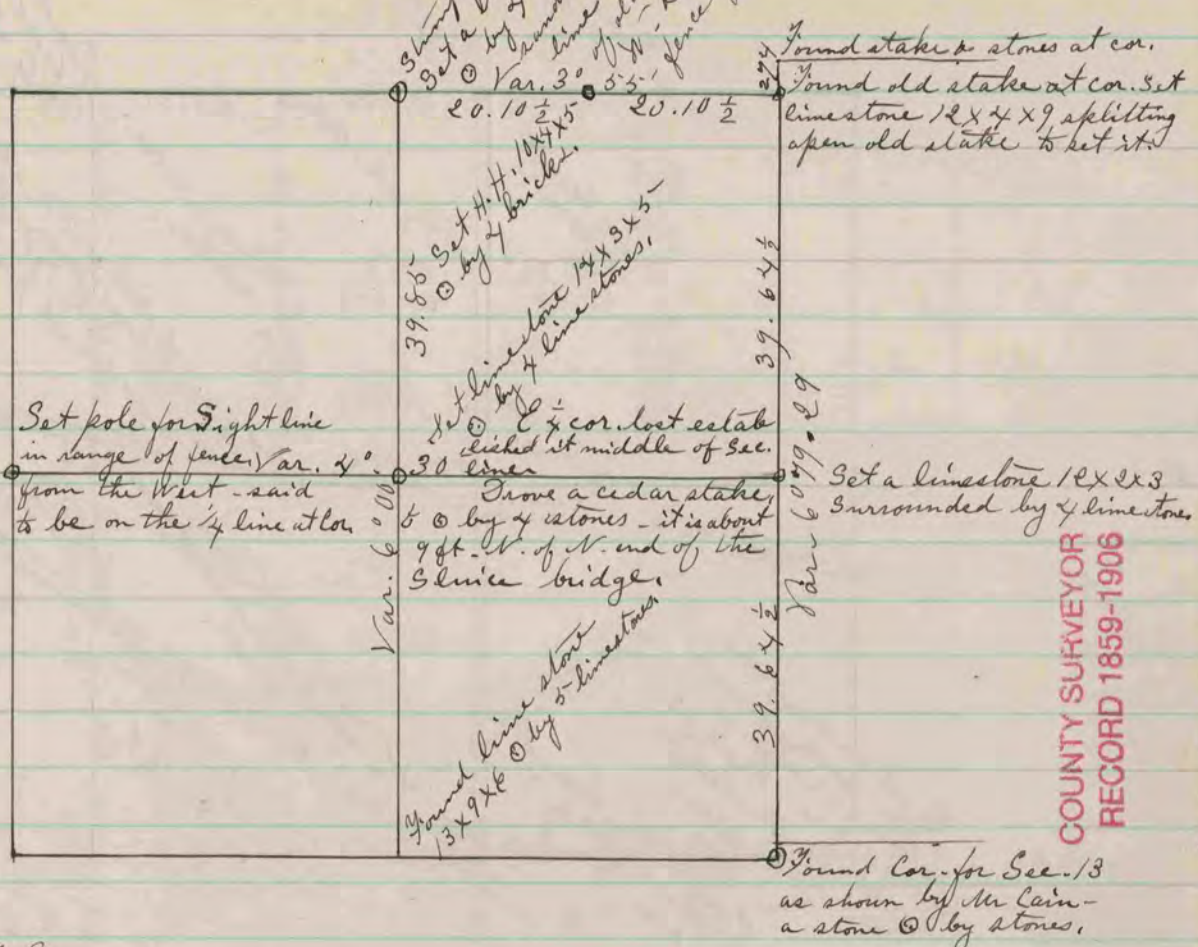 Set a
⊙ by 4
lime
fence
Var. 3° 55'
20.10 ½
20.10 ½
274
Found stake & stones at cor.
Found old stake at cor. Set
limestone 12 X 4 X 9, splitting
open old stake to set it.
39.85
Set H.H. 10X4X5
⊙ by 4 bricks.
Set limestone 14 X 3 X 5
⊙ by 4 lime stones.
39.64 ½
Set pole for Sight line
in range of fence. Var. 4°.
from the West - said
to be on the ¼ line at cor.
30
E ¼ cor. lost estab
lished it middle of Sec.
line
Drove a cedar stake,
⊙ by 4 stones - it is about
9 ft. N. of N. end of the
Sluice bridge.
Var. 6° 00'
Set a limestone 12X2X3
Surrounded by 4 limestones
39.64 ½
Found lime stone
13 X 9 X 6 ⊙ by 5 limestones
COUNTY SURVEYOR
RECORD 1859-1906
Found Cor. for Sec. 13
as shown by Mr Cain -
a stone ⊙ by stones.